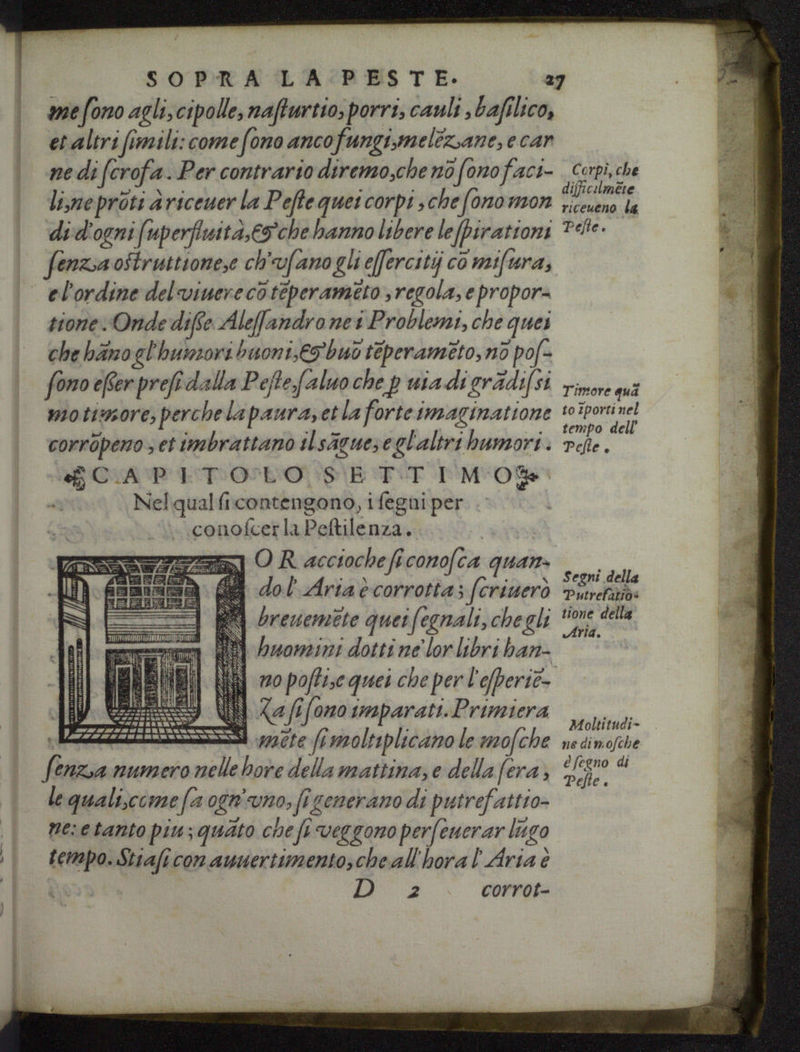 SOPRA LA PESTE. 27
me ſono agli, cipolle, naſturtio, porri, cauli, baſilico,
et altri ſimili: come ſono anco fungi, melēzane, e car
ne di ſcrofa. Per contrario diremo, che nō ſono faci-
li, ne prōti à riceuer la Peſte quei corpi, che ſono mon
di d'ogni ſuperfluità, & che hanno libere le ſpirationi
ſenza oſtruttione, e ch'vſano gli eſſercitij cō miſura,
e l'ordine del viuere cō tēperamēto, regola, e propor-
tione. Onde diſſe Aleſſandro ne i Problemi, che quei
che hāno gl'humori buoni, & buō tēperamēto, nō poſ-
ſono eſſer preſi dalla Peſte, ſaluo che ꝑ uia di grādiſsi
mo timore, perche la paura, et la forte imaginatione
corrōpeno, et imbrattano il sāgue, e gl'altri humori.
Corpi, che
difficilmēte
riceueno la
Peſte.
Timore quā
to īporti nel
tempo dell'
Peſte.
CAPITOLO SETTIMO
Nel qual ſi contengono, i ſegni per
conoſcer la Peſtilenza.
HOR accioche ſi conoſca quan-
do l'Aria è corrotta; ſcriuerò
breuemēte quei ſegnali, che gli
huomini dotti ne' lor libri han-
no poſti, e quei che per l'eſperiē-
za ſi ſono imparati. Primiera
mēte ſi moltiplicano le moſche
ſenza numero nelle hore della mattina, e della ſera,
le quali, come ſa ogn'vno, ſi generano di putrefattio-
ne: e tanto piu; quāto che ſi veggono perſeuerar lūgo
tempo. Stiaſi con auuertimento, che all'hora l'Aria è
Segni della
Putrefatio-
tione della
Aria.
Moltitudi-
ne di moſche
è ſegno di
Peſte.
D 2 corrot-